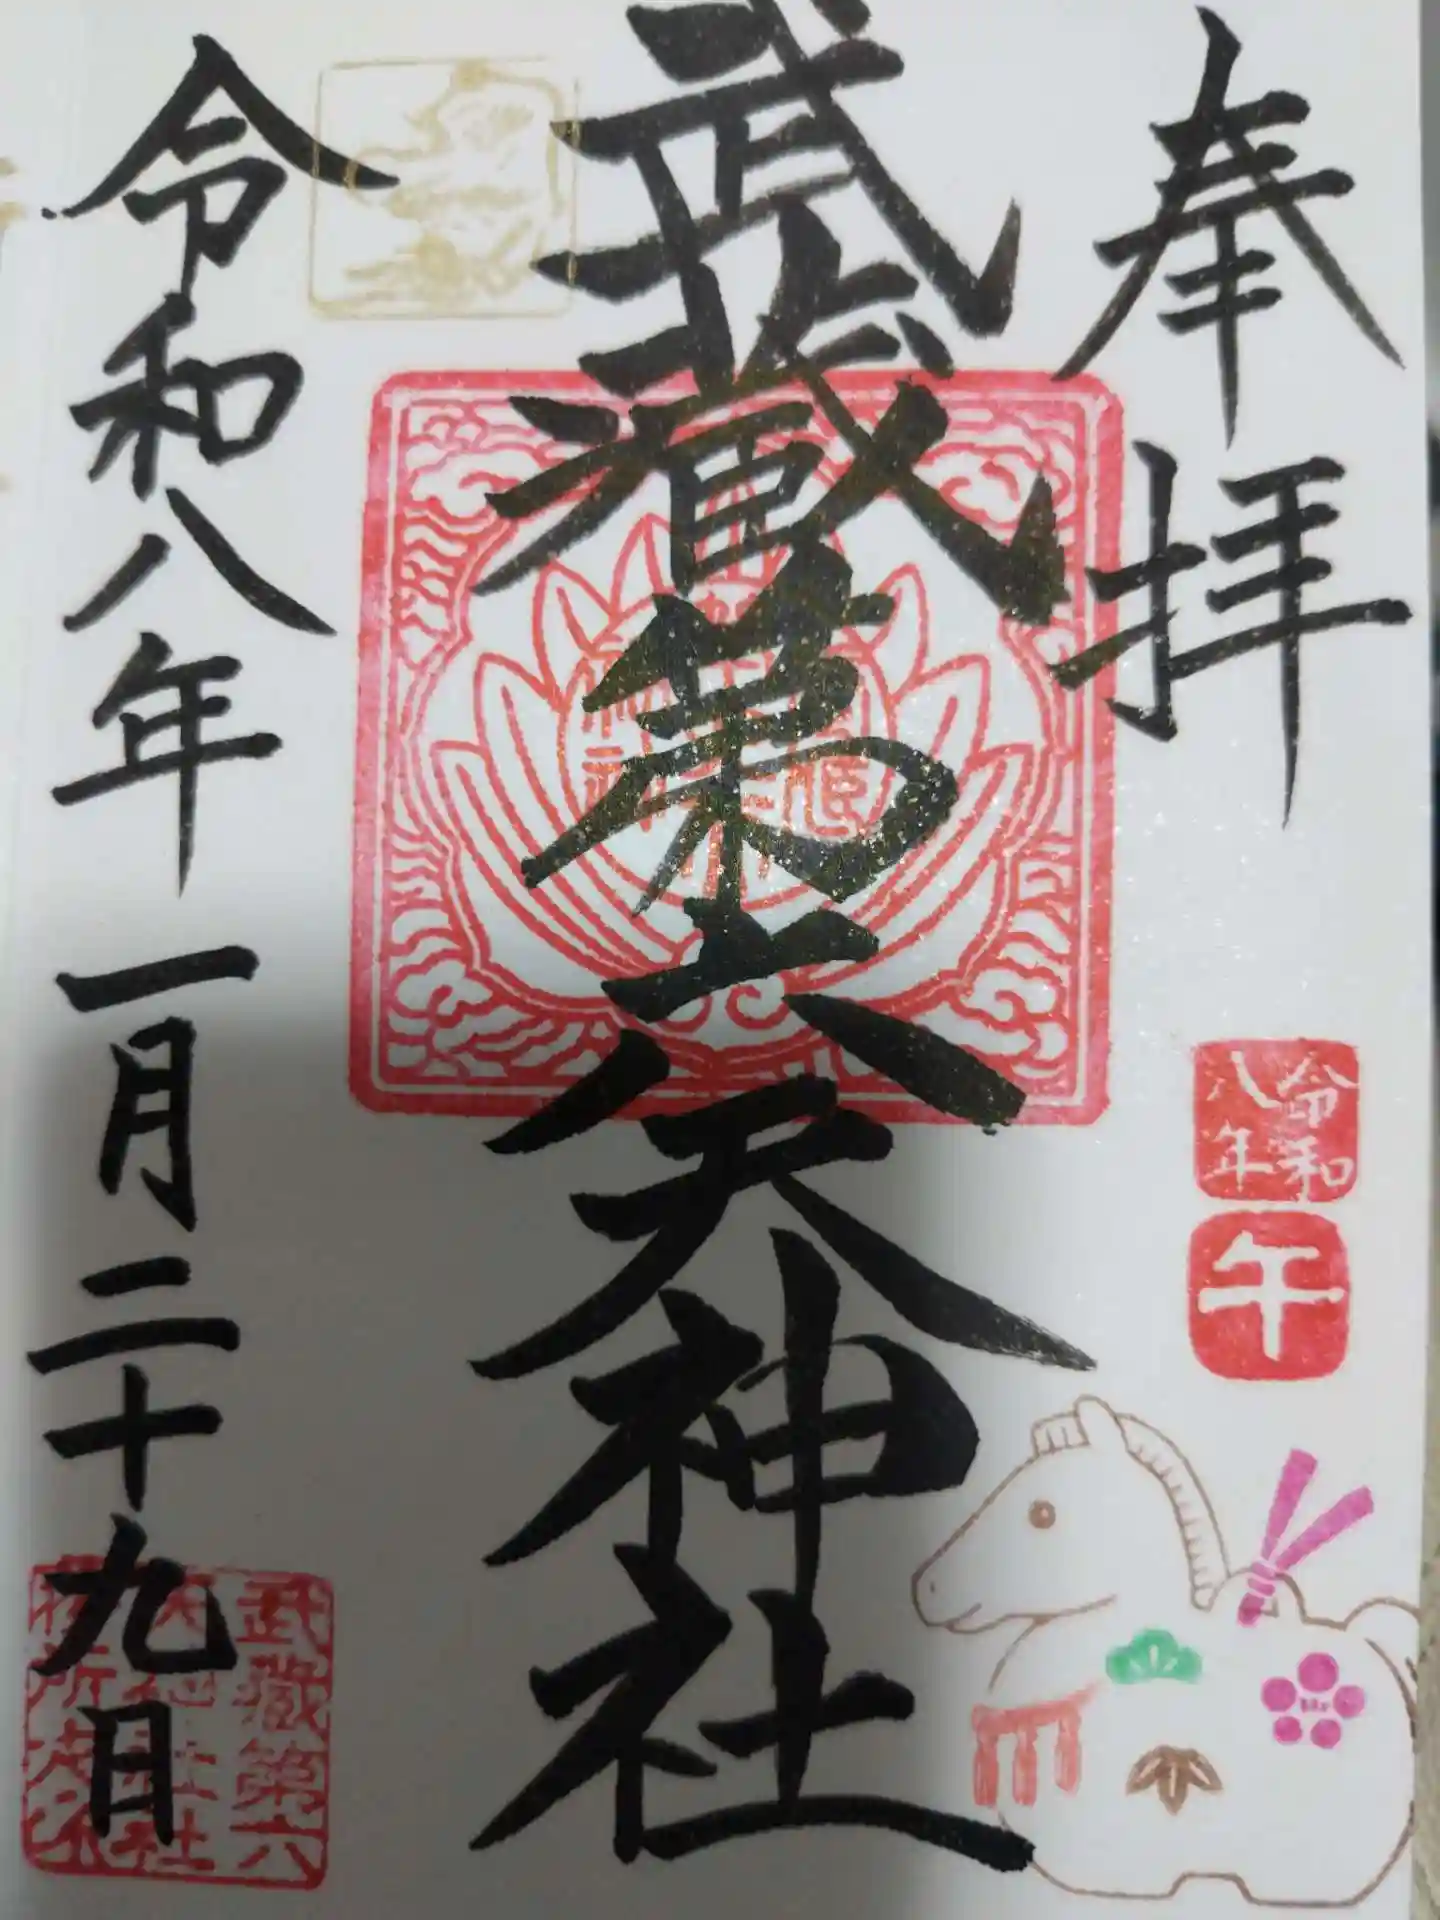 奉拝
令和
八年
午
武蔵第六天神社
令和八年一月二十九日
武蔵第六